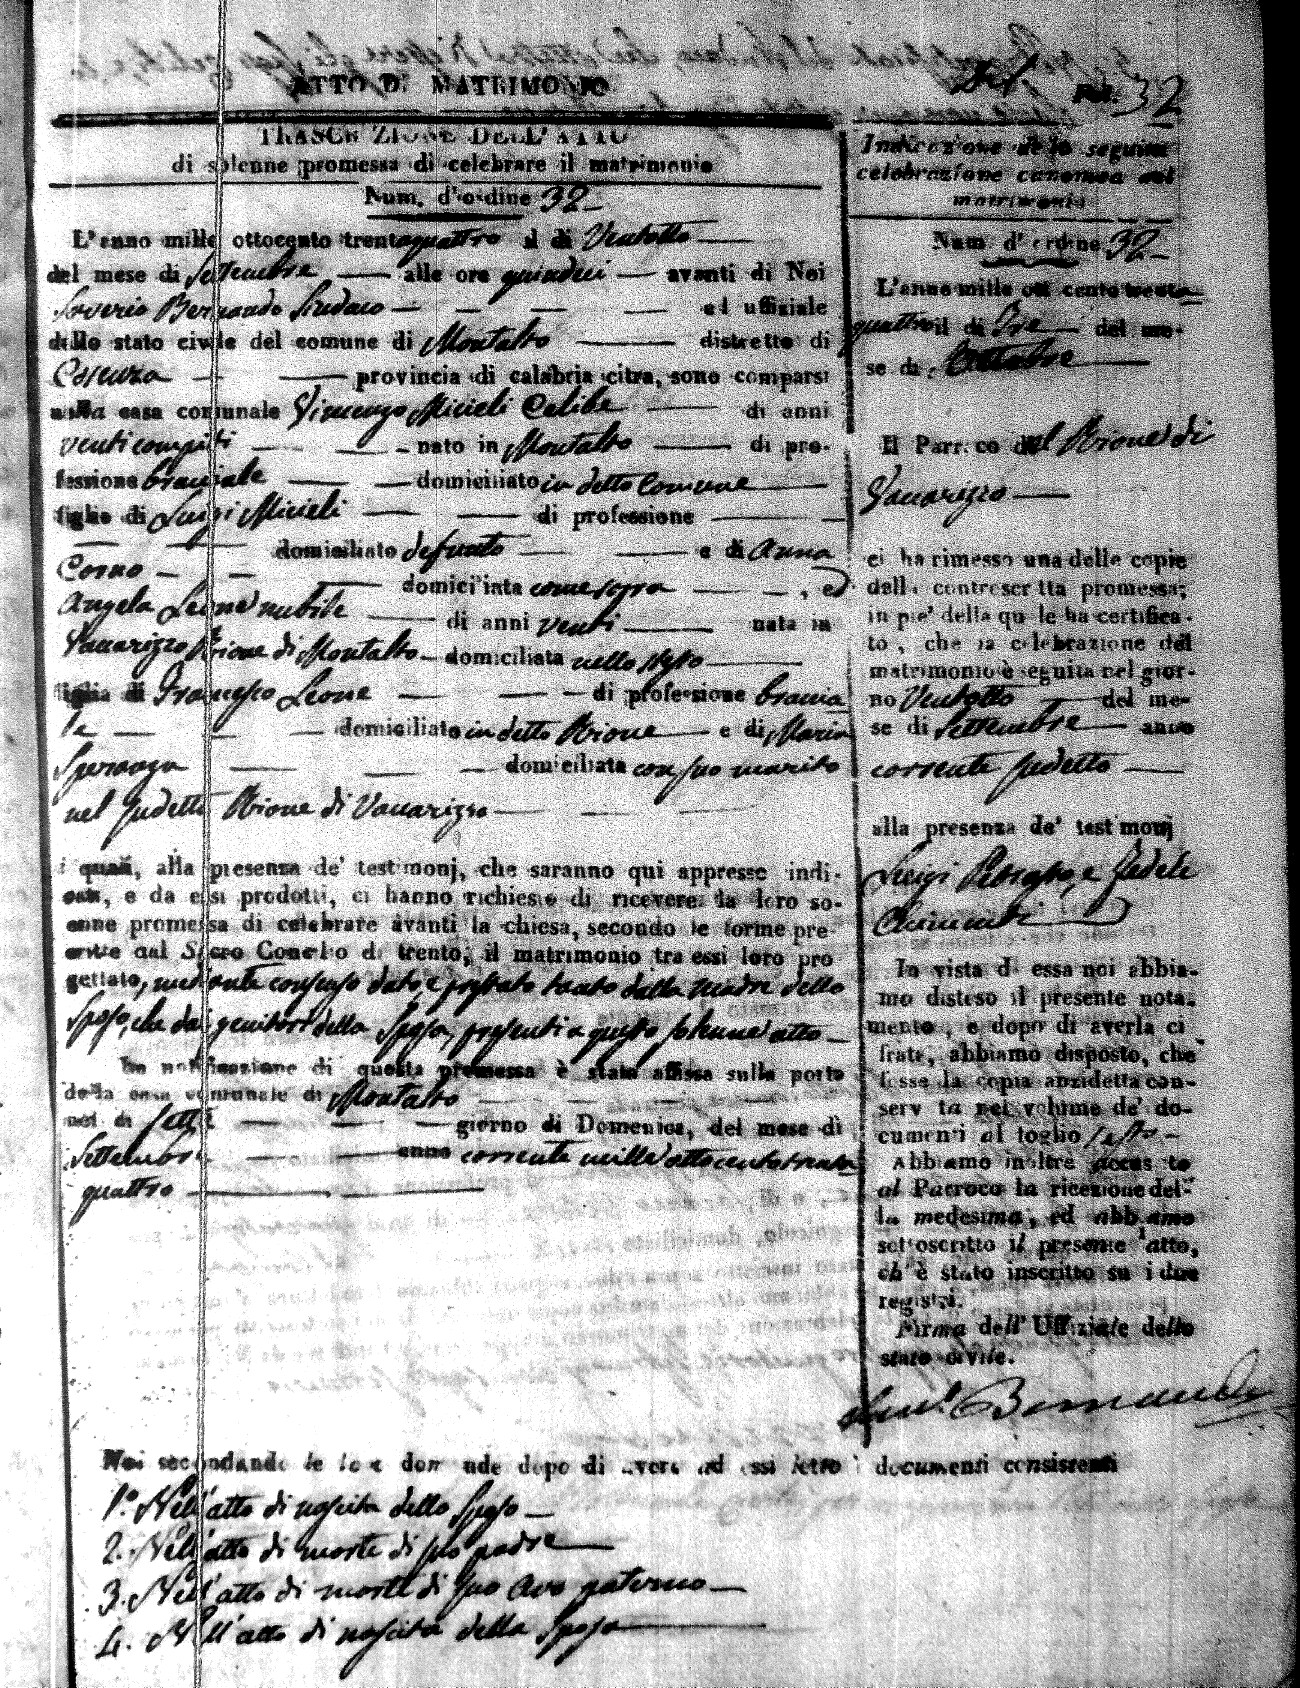 ATTO DI MATRIMONIO
Fol. 32
TRASCRIZIONE DELL'ATTO
di solenne promessa di celebrare il matrimonio
Num. d'ordine 32
L'anno mille ottocento trentaquattro il di Ventotto
del mese di Settembre alle ore quindeci avanti di Noi
Saverio Bernardo Sindaco ed uffiziale
dello stato civile del comune di Montalto distretto di
Cosenza provincia di calabria citra, sono comparsi
nella casa comunale Vincenzo Micieli Celibe di anni
venti compiti nato in Montalto di pro-
fessione bracciale domiciliato in detto Comune
figlio di Luigi Micieli di professione
domiciliato defunto e di Anna
Corno domiciliata come sopra , ed
Angela Leone nubile di anni venti nata in
Vaccarizzo Rione di Montalto domiciliata nello stesso
figlia di Francesco Leone di professione braccia
le domiciliato in detto Rione e di Maria
Speranza domiciliata con suo marito
nel sudetto Rione di Vaccarizzo
i quali, alla presenza de' testimonj, che saranno qui appresso indi-
cati, e da essi prodotti, ci hanno richiesto di ricevere la loro so-
enne promessa di celebrare avanti la chiesa, secondo le forme pre-
critte dal Sacro Concilio di trento, il matrimonio tra essi loro pro
gettato, mediante consenso dato e prestato tanto dalla madre dello
Sposo, che dai genitori della Sposa, presenti a questo solenne atto
La notificazione di questa promessa è stata affissa sulla porta
della casa comunale di Montalto
nel di sette giorno di Domenica, del mese di
Settembre anno corrente mille ottocento trenta
quattro
Indicazione della seguita
celebrazione canonica del
matrimonio
Num d'ordine 32
L'anno mille ott cento trenta
quattro il di Tre del me-
se di Ottobre
Il Parroco del Rione di
Vaccarizzo
ci ha rimesso una delle copie
della controscritta promessa;
in pie' della quale ha certifica-
to, che la celebrazione del
matrimonio è seguita nel gior-
no Ventotto del me-
se di Settembre anno
corrente sudetto
alla presenza de' testimonj
Luigi e Fedele
Chimenti
In vista di essa noi abbia-
mo disteso il presente nota-
mento, e dopo di averla ci
frata, abbiamo disposto, che
fosse la copia anzidetta con-
servata nel volume de' do-
cumenti al foglio sesto
Abbiamo inoltre accusato
al Parroco la ricezione del-
la medesima, ed abbiamo
sottoscritto il presente atto,
ch'è stato inscritto su i due
registri.
Firma dell'Uffiziale dello
stato civile.
Bernardo
Noi secondando le loro domande dopo di avere ad essi letto i documenti consistenti
1.° Nell'atto di nascita dello Sposo
2. Nell'atto di morte di suo padre
3. Nell'atto di morte di suo avo paterno
4. Nell'atto di nascita della Sposa